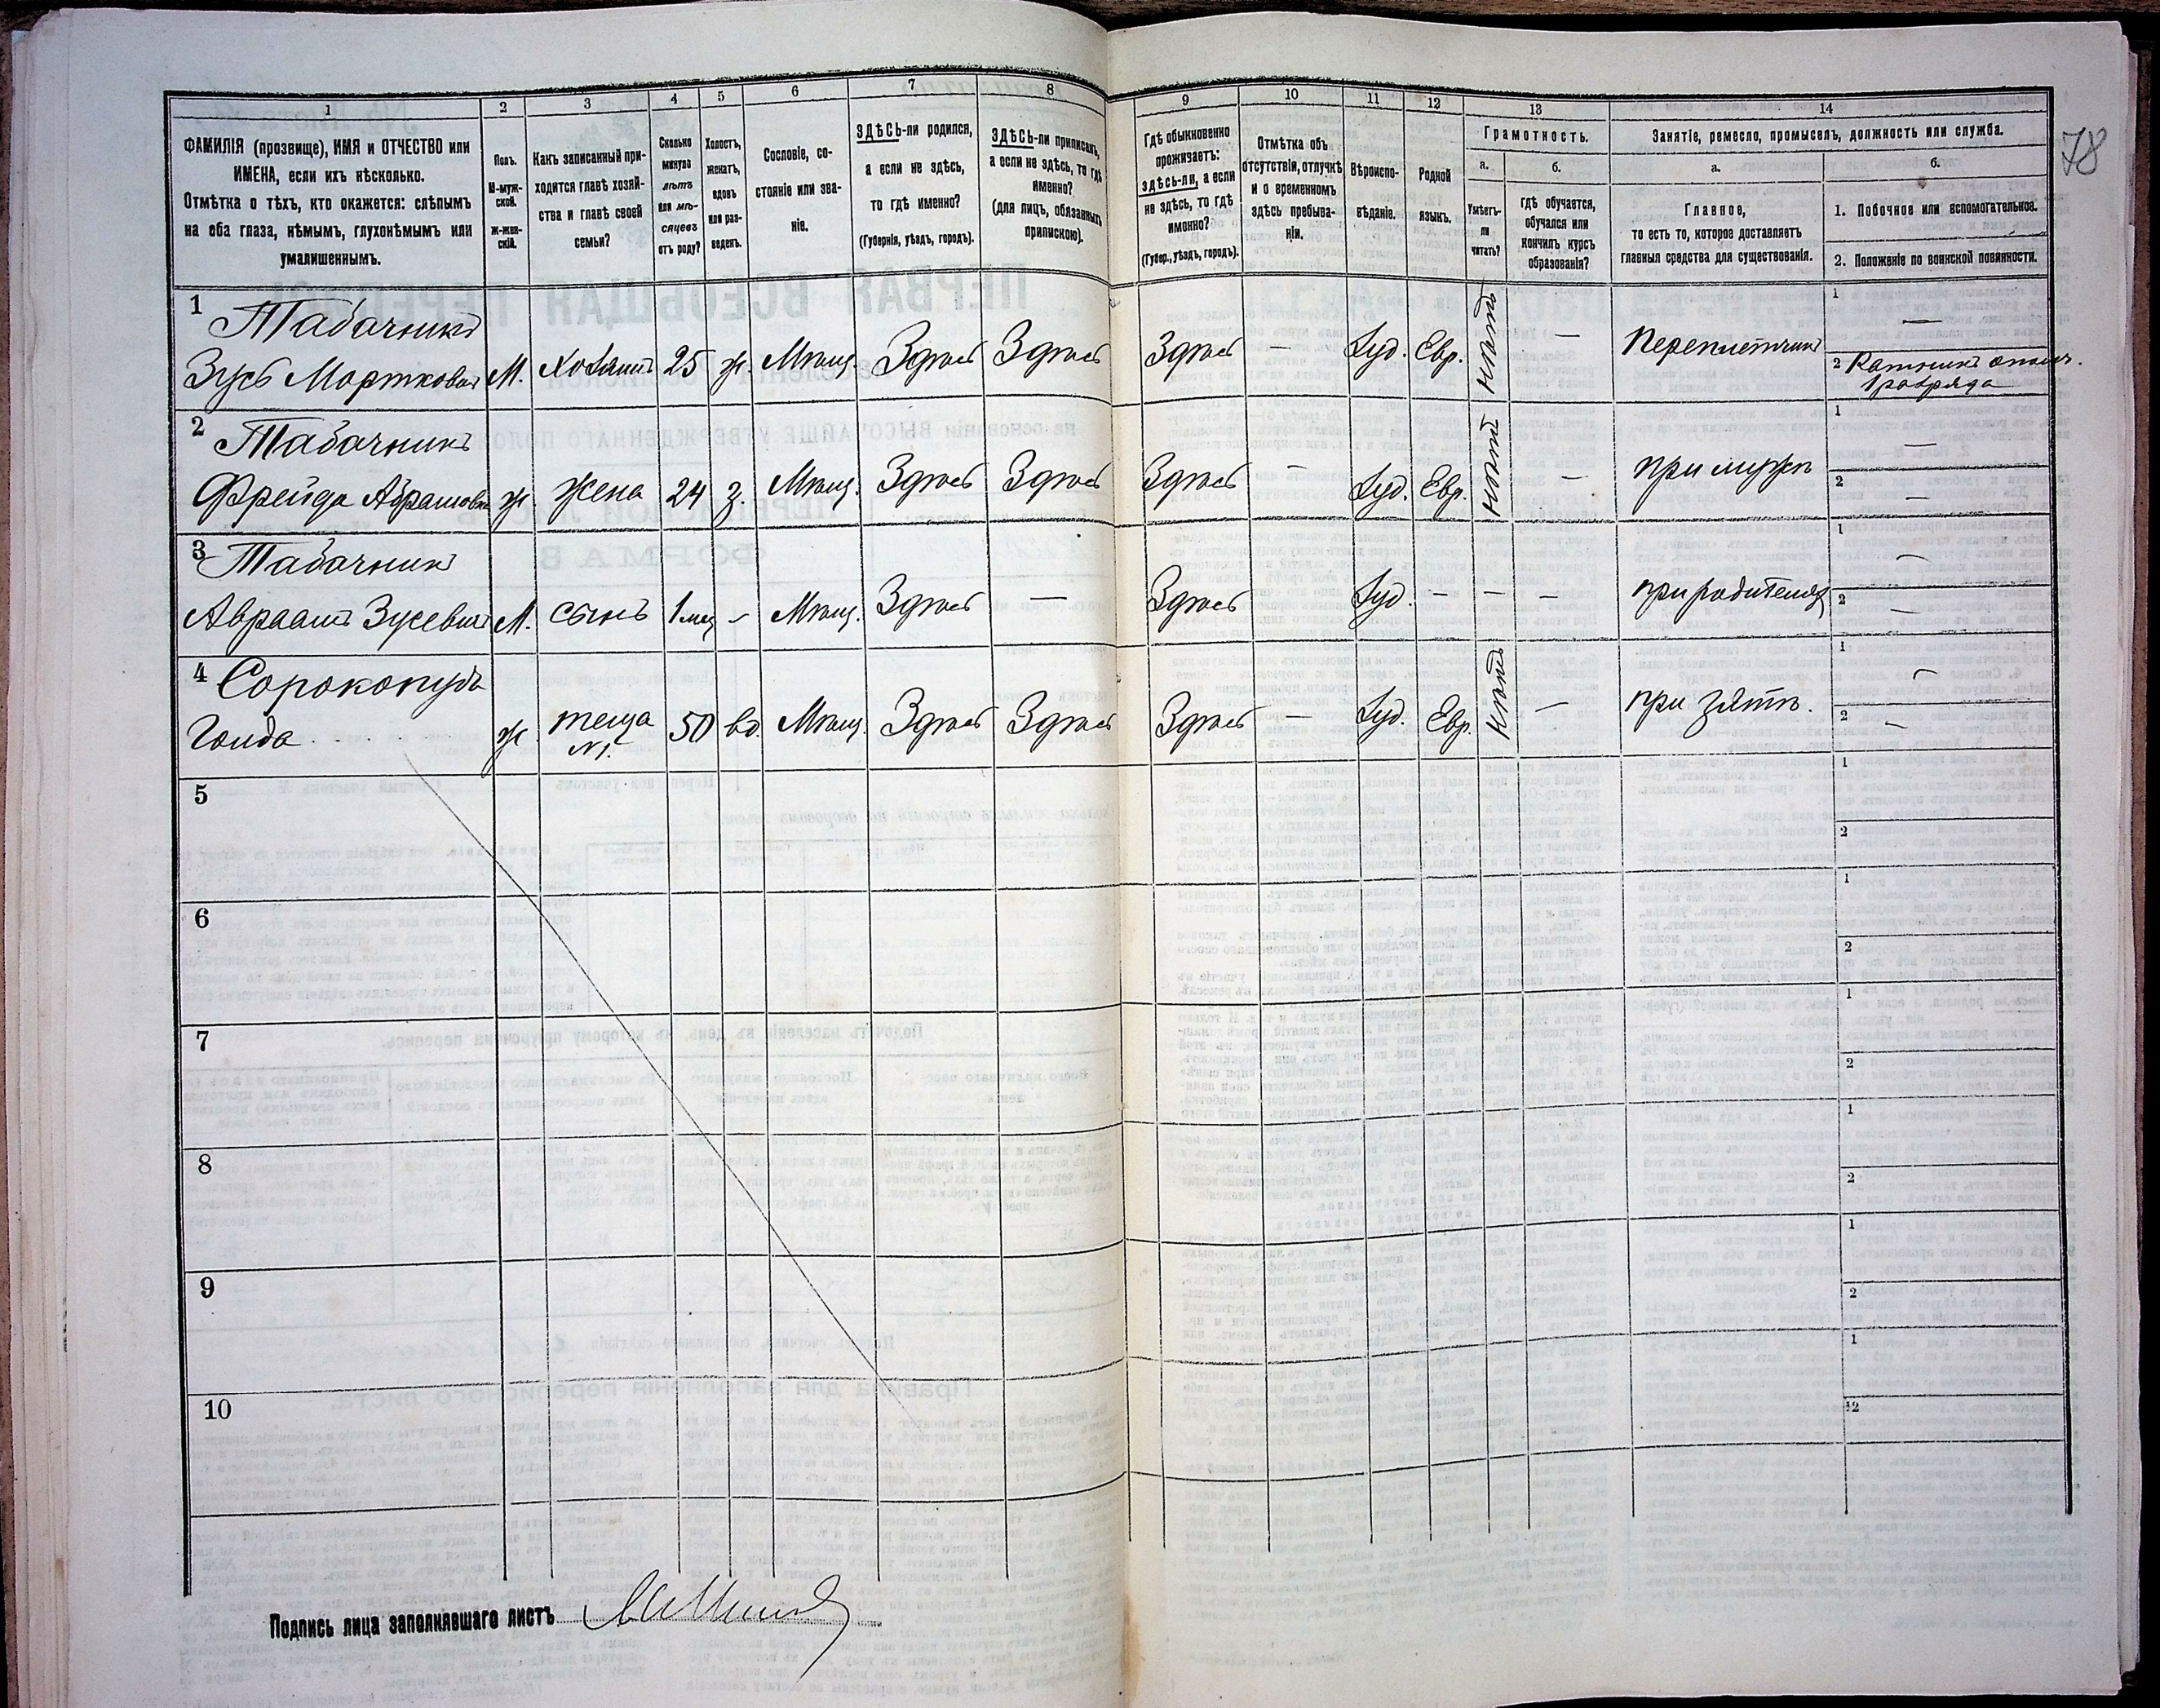 78
1 2 3 4 5 6 7 8 9 10 11 12 13 14
ФАМИЛІЯ (прозвище), ИМЯ и ОТЧЕСТВО или
ИМЕНА, если ихъ нѣсколько.
Отмѣтка о тѣхъ, кто окажется: слѣпымъ
на оба глаза, нѣмымъ, глухонѣмымъ или
умалишеннымъ.
Полъ.
М-муж-
ской.
Ж-жен-
скій.
Какъ записанный при-
ходится главѣ хозяй-
ства и главѣ своей
семьи?
Сколько
минуло
лѣтъ
или мѣ-
сяцевъ
отъ роду?
Холостъ,
женатъ,
вдовъ
или раз-
веденъ.
Сословіе, со-
стояніе или зва-
ніе.
ЗДѢСЬ-ли родился,
а если не здѣсь,
то гдѣ именно?
(Губернія, уѣздъ, городъ).
ЗДѢСЬ-ли приписанъ,
а если не здѣсь, то гдѣ
именно?
(для лицъ, обязанныхъ
припискою).
Гдѣ обыкновенно
проживаетъ:
здѣсь-ли, а если
не здѣсь, то гдѣ
именно?
(Губер., уѣздъ, городъ).
Отмѣтка объ
отсутствіи, отлучкѣ
и о временномъ
здѣсь пребыва-
ніи.
Вѣроиспо-
вѣданіе.
Родной
языкъ.
Грамотность.
а. б.
Умѣетъ-
ли
читать?
гдѣ обучается,
обучался или
кончилъ курсъ
образованія?
Занятіе, ремесло, промыселъ, должность или служба.
а. б.
Главное,
то есть то, которое доставляетъ
главныя средства для существованія.
1. Побочное или вспомогательное.
2. Положеніе по воинской повинности.
1 Табачникъ 1 —
Зусь Мортковичъ М. Хозяинъ 25 ж. Мѣщ. Здѣсь Здѣсь Здѣсь — Іуд. Евр. нѣтъ — Переплетчикъ 2 Ратникъ ополч.
1 разряда
2 Табачникъ 1 —
Фрейда Абрамовна ж. жена 24 з. Мѣщ. Здѣсь Здѣсь Здѣсь — Іуд. Евр. нѣтъ — при мужѣ 2 —
3 Табачник 1 —
Авраамъ Зусевичъ М. сынъ 1 мец - Мѣщ. Здѣсь — Здѣсь Іуд. - - - при родителяхъ 2 —
4 Сорокопудъ 1 —
Гоида ж. теща 50 вд. Мѣщ. Здѣсь Здѣсь Здѣсь — Іуд. Евр. нѣтъ — при зятѣ. 2 —
№1.
5 1
2
6 1
2
7 1
2
8 1
2
9 1
2
10 1
2
Подпись лица заполнявшаго листъ